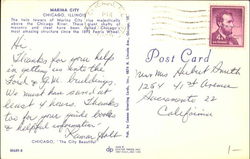 MARINA CITY
CHICAGO, ILLINOIS
The twin towers of Marina City rise majestically
above the Chicago River. These giant shafts of
masonry and steel have been called Chicago's
most amazing structure since the 1893 Fair's Wheel.
Hi
Thanks for your help
in getting us into the
Ford & G.M. buildings.
We must have saved at
least 4 hours. Thanks
too for your guide books
& helpful information.
CHICAGO, "The City Beautiful"
Post Card
Mr & Mrs Hubert Smith
1254 41st Avenue
Sacramento 22
California